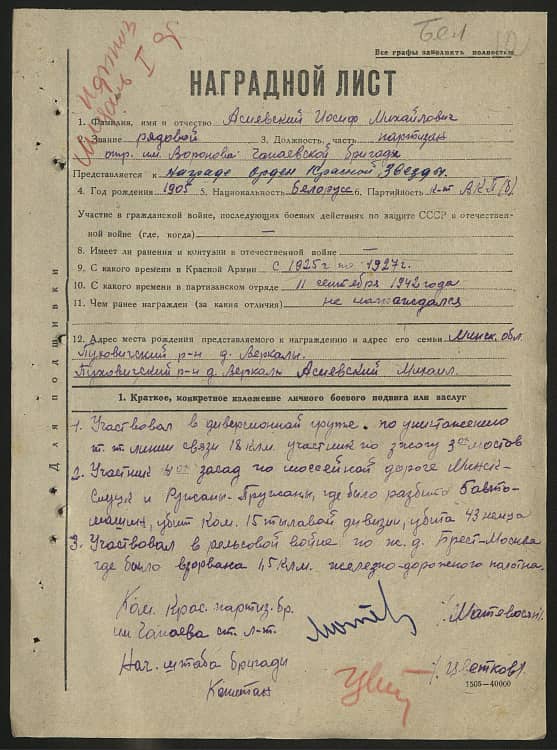 Бел
Все графы заполнить полностью
партиз
медаль I ст
НАГРАДНОЙ ЛИСТ
1. Фамилия, имя и отчество Асиевский Иосиф Михайлович
2. Звание рядовой 3. Должность, часть партизан
отр. им. Воронова Чапаевской бригады
Представляется к награде Орден Красной Звезды.
4. Год рождения 1905 5. Национальность белорусс 6. Партийность к-т ВКП(б)
Участие в гражданской войне, последующих боевых действиях по защите СССР и отечествен-
ной войне (где, когда) —
8. Имеет ли ранения и контузии в отечественной войне —
9. С какого времени в Красной Армии с 1925г по 1927г.
10. С какого времени в партизанском отряде 11 сентября 1942 года
11. Чем ранее награжден (за какия отличия) не награждался
12. Адрес места рождения представляемого к награждению и адрес его семьи Минск. обл.
Пуховичский р-н д. Веркалы.
Пуховичский р-н д. Веркалы Асиевский Михаил.
Для подшивки
1. Краткое, конкретное изложение личного боевого подвига или заслуг
1. Участвовал в диверсионной группе по уничтожению
т.т. линии связи 18 клм. участник по зжогу 3ох мостов
2. Участник 4ох засад по шоссейной дороге Минск-
Слуцк и Ружаны-Пружаны, где было разбито 6 авто-
машин, убит ком. 15 тылавой дивизии, убита 43 немца
3. Участвовал в рельсовой войне по ж.д. Брест-Москва
где было взорвана 45 клм. железно-дорожного полотна.
Ком. Крас. партиз. бр.
им Чапаева ст. л-т. /Матевосян/.
Нач. штаба бригады
Капитан /. Цветков/.
1505—40000